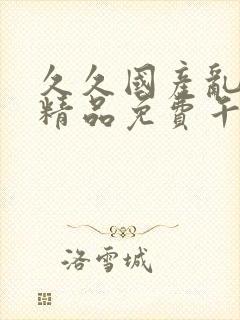 久久國產亂
精品免費午
洛雪城